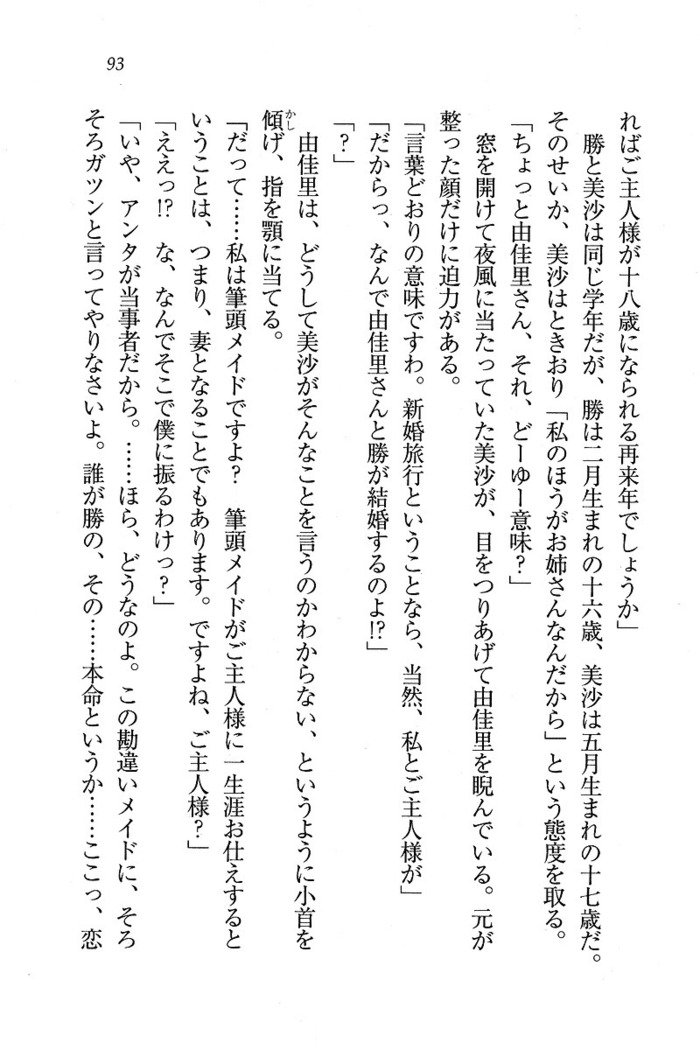 93
ればご主人様が十八歳になられる再来年でしょうか」
勝と美沙は同じ学年だが、勝は二月生まれの十六歳、美沙は五月生まれの十七歳だ。
そのせいか、美沙はときおり「私のほうがお姉さんなんだから」という態度を取る。
「ちょっと由佳里さん、それ、どーゆー意味？」
窓を開けて夜風に当たっていた美沙が、目をつりあげて由佳里を睨んでいる。元が
整った顔だけに迫力がある。
「言葉どおりの意味ですわ。新婚旅行ということなら、当然、私とご主人様が」
「だからっ、なんで由佳里さんと勝が結婚するのよ!?」
「？」
由佳里は、どうして美沙がそんなことを言うのかわからない、というように小首を
傾げ、指を顎に当てる。
かし
「だって……私は筆頭メイドですよ？　筆頭メイドがご主人様に一生涯お仕えすると
いうことは、つまり、妻となることでもあります。ですよね、ご主人様？」
「ええっ!?　な、なんでそこで僕に振るわけっ？」
「いや、アンタが当事者だから。……ほら、どうなのよ。この勘違いメイドに、そろ
そろガツンと言ってやりなさいよ。誰が勝の、その……本命というか……ここっ、恋